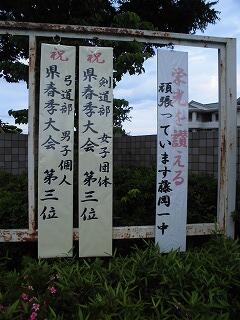 栄光を讃える
頑張っています藤岡一中
祝
県春季大会 第三位
剣道部 女子団体
祝
県春季大会 第三位
弓道部 男子個人